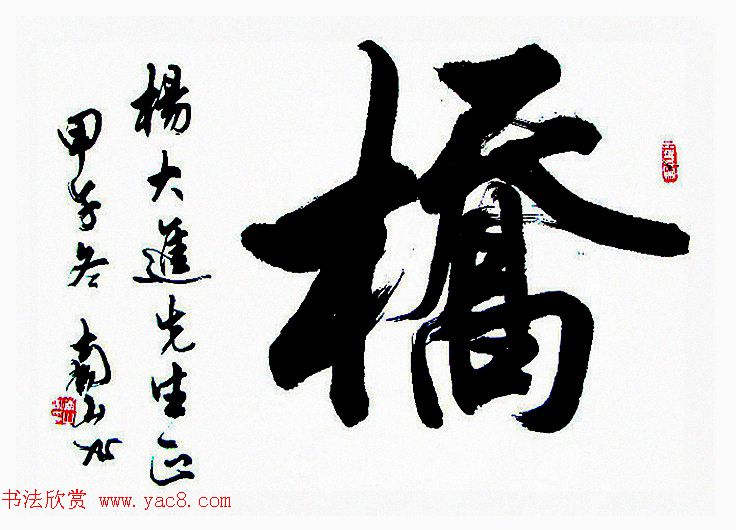 橋
楊大進先生正
甲子冬 南山
书法欣赏 www.yac8.com